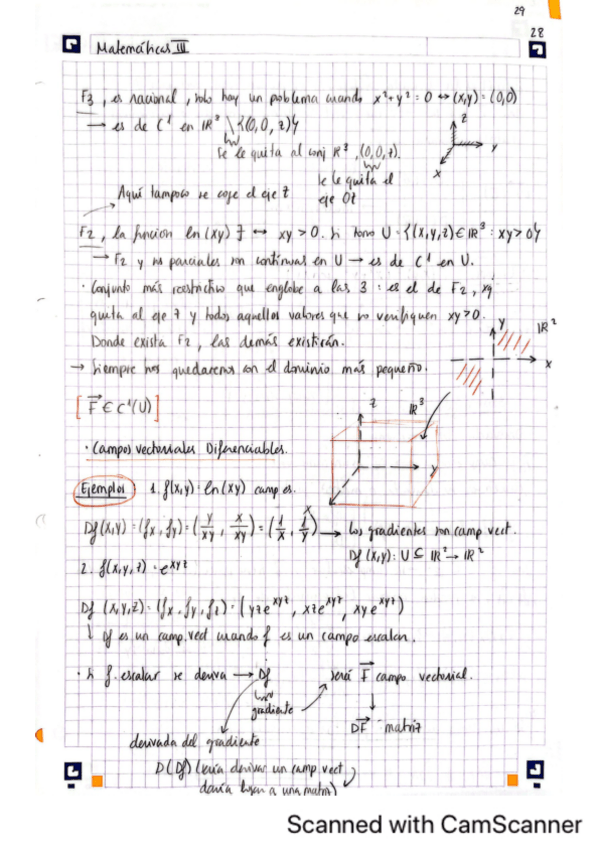 29
28
Matemáticas III
F3, es racional, solo hay un problema cuando x²+y²=0 ↔ (x,y)=(0,0)
→ es de C¹ en IR³ \ {(0,0,z)}
Se le quita al conj IR³, (0,0,z).
se le quita el
eje OZ
z
y
x
Aquí tampoco se coje el eje z
F2, la función ln(xy) ∃ ↔ xy>0. Si tomo U={(x,y,z)∈IR³: xy>0}
→ F2 y sus parciales son continuas en U → es de C¹ en U.
· Conjunto más restrictivo que englobe a las 3: es el de F2, xq
quita al eje z y todos aquellos valores que no verifiquen xy>0.
Donde exista F2, las demás existirán.
→ Siempre nos quedaremos con el dominio más pequeño.
y
IR²
x
[F⃗ ∈ C¹(U)]
z
IR³
y
x
· Campos vectoriales Diferenciables.
Ejemplos 1. f(x,y)=ln(xy) camp es.
Df(x,y)=(fx, fy)=(y/xy, x/xy)=(1/x, 1/y) → los gradientes son camp vect.
Df(x,y): U ⊆ IR² → IR²
2. f(x,y,z)=e^xyz
Df (x,y,z)=(fx, fy, fz)=(yze^xyz, xze^xyz, xye^xyz)
↓ Df es un camp. vect cuando f es un campo escalar.
· Si f. escalar se deriva → Df será F⃗ campo vectorial.
gradiente
DF⃗ matriz
derivada del gradiente
D(Df) (sería derivar un camp vect
daría lugar a una matriz)
Scanned with CamScanner